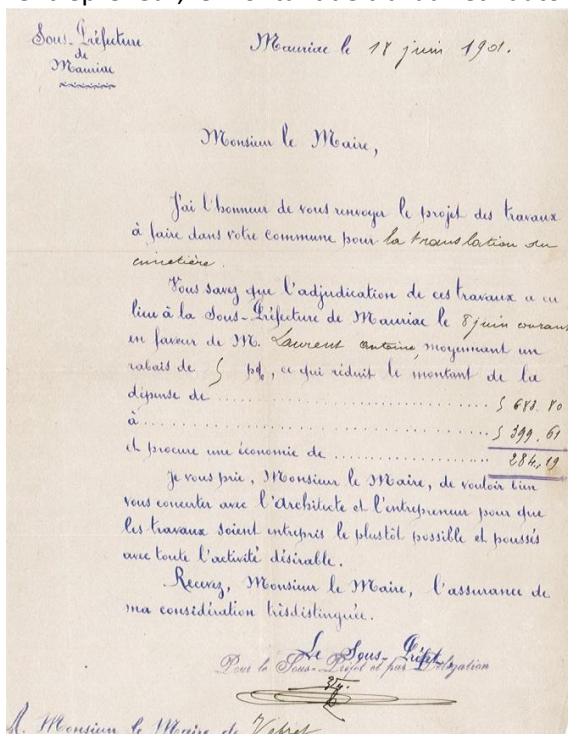 Sous-Préfecture
de
Mauriac
Mauriac le 18 juin 1901.
Monsieur le Maire,
J'ai l'honneur de vous renvoyer le projet des travaux
à faire dans votre commune pour la translation du
cimetière.
Vous savez que l'adjudication de ces travaux a eu
lieu à la Sous-Préfecture de Mauriac le 8 juin courant
en faveur de M. Laurent Antoine, moyennant un
rabais de 5 p%, ce qui réduit le montant de la
dépense de .......... 5 683.80
à .......... 5 399.61
et procure une économie de .......... 284,19
Je vous prie, Monsieur le Maire, de vouloir bien
vous concerter avec l'Architecte et l'entrepreneur pour que
les travaux soient entrepris le plustôt possible et poussés
avec toute l'activité désirable.
Recevez, Monsieur le Maire, l'assurance de
ma considération trèsdistinguée.
Le Sous-Préfet
Pour le Sous-Préfet et par Délégation
A Monsieur le Maire de Vebret